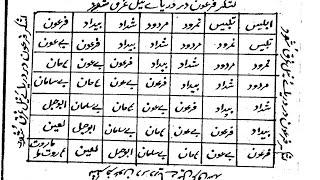 لشکر فرعون در دریائے نیل غرق شود
ابلیس تلبیس نمرود مردود شداد بیداد فرعون
تلبیس نمرود مردود شداد بیداد فرعون بےعون
نمرود مردود شداد بیداد فرعون بےعون ہامان
مردود شداد بیداد فرعون بےعون ہامان بےسامان
شداد بیداد فرعون بےعون ہامان بےسامان ابوجہل
بیداد فرعون بےعون ہامان بےسامان ابوجہل لعین
فرعون بےعون ہامان بےسامان ابوجہل لعین
لشکر فرعون در دریائے نیل غرق شود
لشکر فرعون در دریائے نیل غرق شود